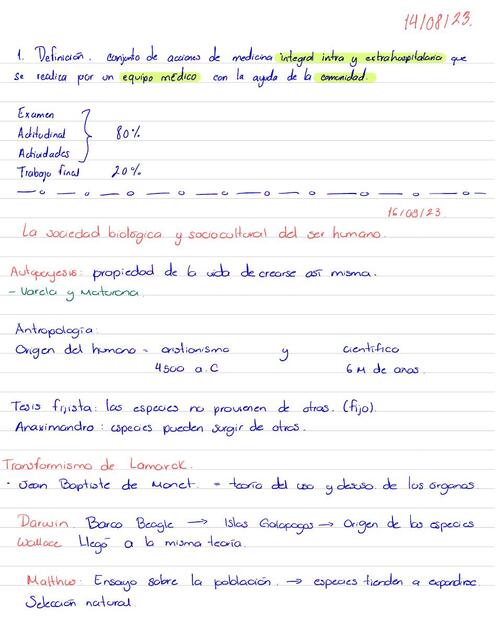 14/08/23.
1. Definición. conjunto de acciones de medicina integral intra y extrahospitalaria que
se realiza por un equipo médico con la ayuda de la comunidad.
Examen
Actitudinal } 80%
Actividades
Trabajo final 20%
16/08/23.
La sociedad biológica y sociocultural del ser humano.
Autopoyesis: propiedad de la vida de crearse así misma.
- Varela y Maturana.
Antropología:
Origen del humano = cristianismo y científico
4500 a.C 6 M de años.
Tesis fijista: las especies no provienen de otras. (fijo).
Anaximandro: especies pueden surgir de otros.
Transformismo de Lamarck.
· Jean Baptiste de Monet. = teoría del uso y desuso de los órganos.
Darwin. Barco Beagle → Islas Galápagos → Origen de las especies
Wallace Llegó a la misma teoría.
Malthus: Ensayo sobre la población. → especies tienden a expandirse.
Selección natural.